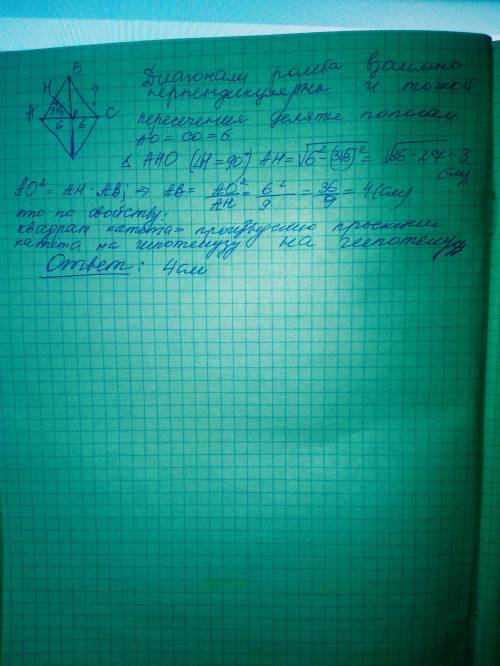 B
H
?
A
C
6
6
Диагонали ромба взаимно
перпендикулярны и точкой
пересечения делятся пополам
AO = CO = 6
Δ AHO (∠H = 90°) AH = √6² - (3√3)² = √36 - 27 = 3
(см)
AO² = AH · AB; ⇒ AB = AO²/AH = 6²/9 = 36/9 = 4 (см)
это по свойству:
квадрат катета = произведению проекции
катета на гипотенузу на гипотенузу
Ответ: 4 см